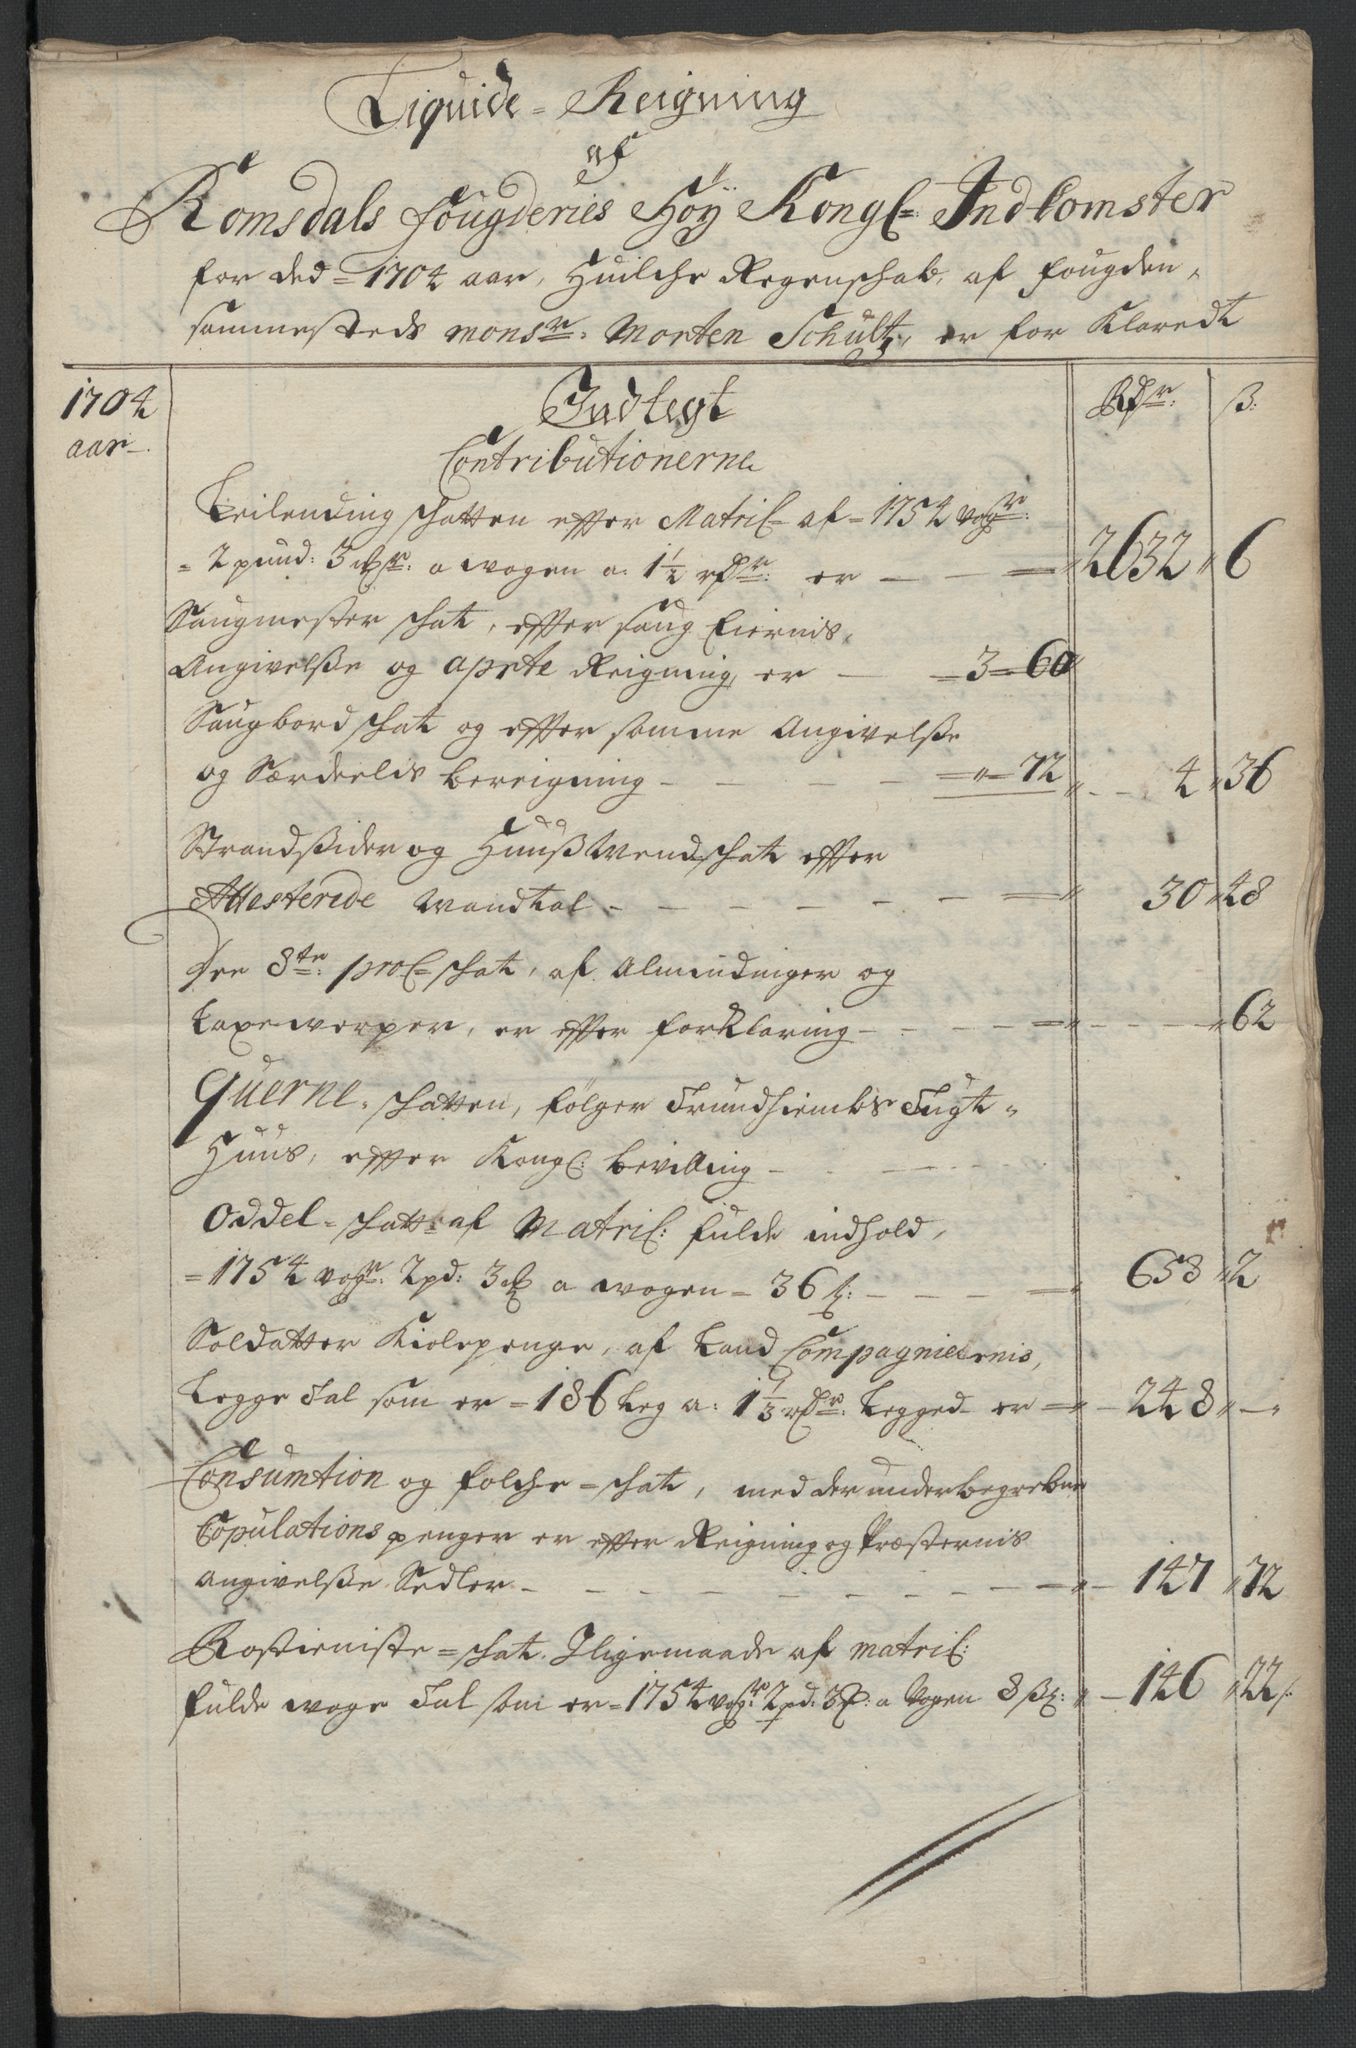 Liquide = Reigning
af
Romsdals fougderies Höÿ Kongl: Indkomster
for ded = 1704 aar, Huilche Regenschab, af fougden
sammesteds monsr: Morten Schultz, er for Klaredt
1704 aar Indtegt Rdr: ß:
Contributionerne
Leilending schatten effter Matril af = 1754 vogr:
= 2 pund: 3 mkr: a wogen a: 1½ rdr: er — — 2632 " 6
Saugmester schat, effter saug Eiernis
Angivelße og aparte Reigning er — = 3 = 60
Saugbord schat og effter samme Angivelße
og Særdeelis bereigning — — = " = 72 " 4 " 36
Strandsider og Huußmendschat effter
Attesterede Mandtal — — — 30 " 48
Den 8te: part schat, af Almindinger og
Laxeworper, er effter forklaring — — — " 62
Querne = schatten, følger Trundhiembs Tugt =
Huus, effter Kongl: bevilling — —
Oddel = schatt af Matril: fulde indhold,
= 1754 vogr: 2 pd: 3 mk a wogen = 36 ß: — — 658 " 2
Soldatter Kiolepenge, af Land Compagniernis,
Legge Tal som er = 186 Leg a: 1⅓ rdr: Legged er = 248 " — "
Consumtion og folche = schat, med der under begrebne
Copulations penger er effter Reigning og Præsternis
angivelße Sedler — — — 147 " 72
Rostieniste = schat. Iligemaade af matril:
fulde woge Tal som er = 1754 vogr: 2 pd: 3 mk: a Vogen 8 ß: " — 146 " 22